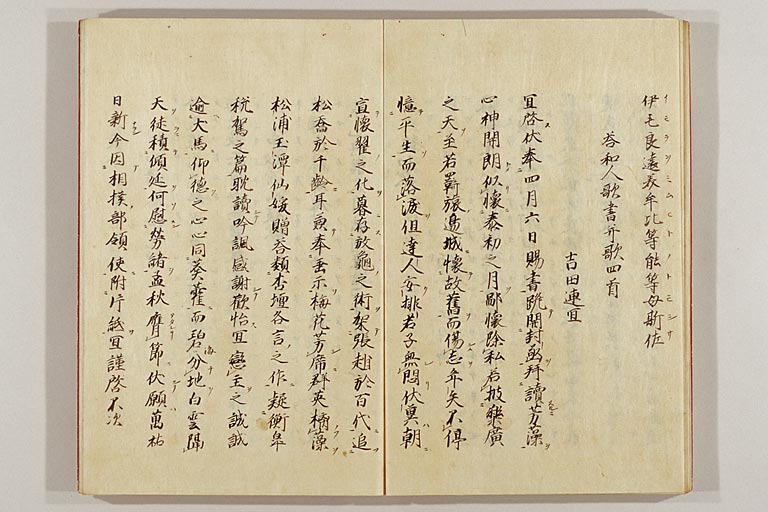 伊毛良遠美牟比等能等母斯佐
荅和人歌書并歌四首
吉田連宜
宜啓伏奉四月六日賜書跪開封凾拜讀芳藻
心神開朗似懷泰初之月鄙懷除私若披樂廣
之天至若羈旅邊城懷故舊而傷志年矢不停
憶平生而落淚但達人安排君子無悶伏冀朝
宜懷翟之化暮存放龜之術架張趙於百代追
松喬於千齡耳兼奉垂示梅花芳席群英摛藻
松浦玉潭仙媛贈荅類杏壇各言之作疑衡皐
税駕之篇耽讀吟諷感謝歡怡宜戀主之誠誠
逾犬馬仰德之心心同葵藿而碧海分地白雲隔
天徒積傾延何慰勞緒孟秋膺節伏願萬祐
日新今因相撲部領使謹付片紙宜謹啓不次